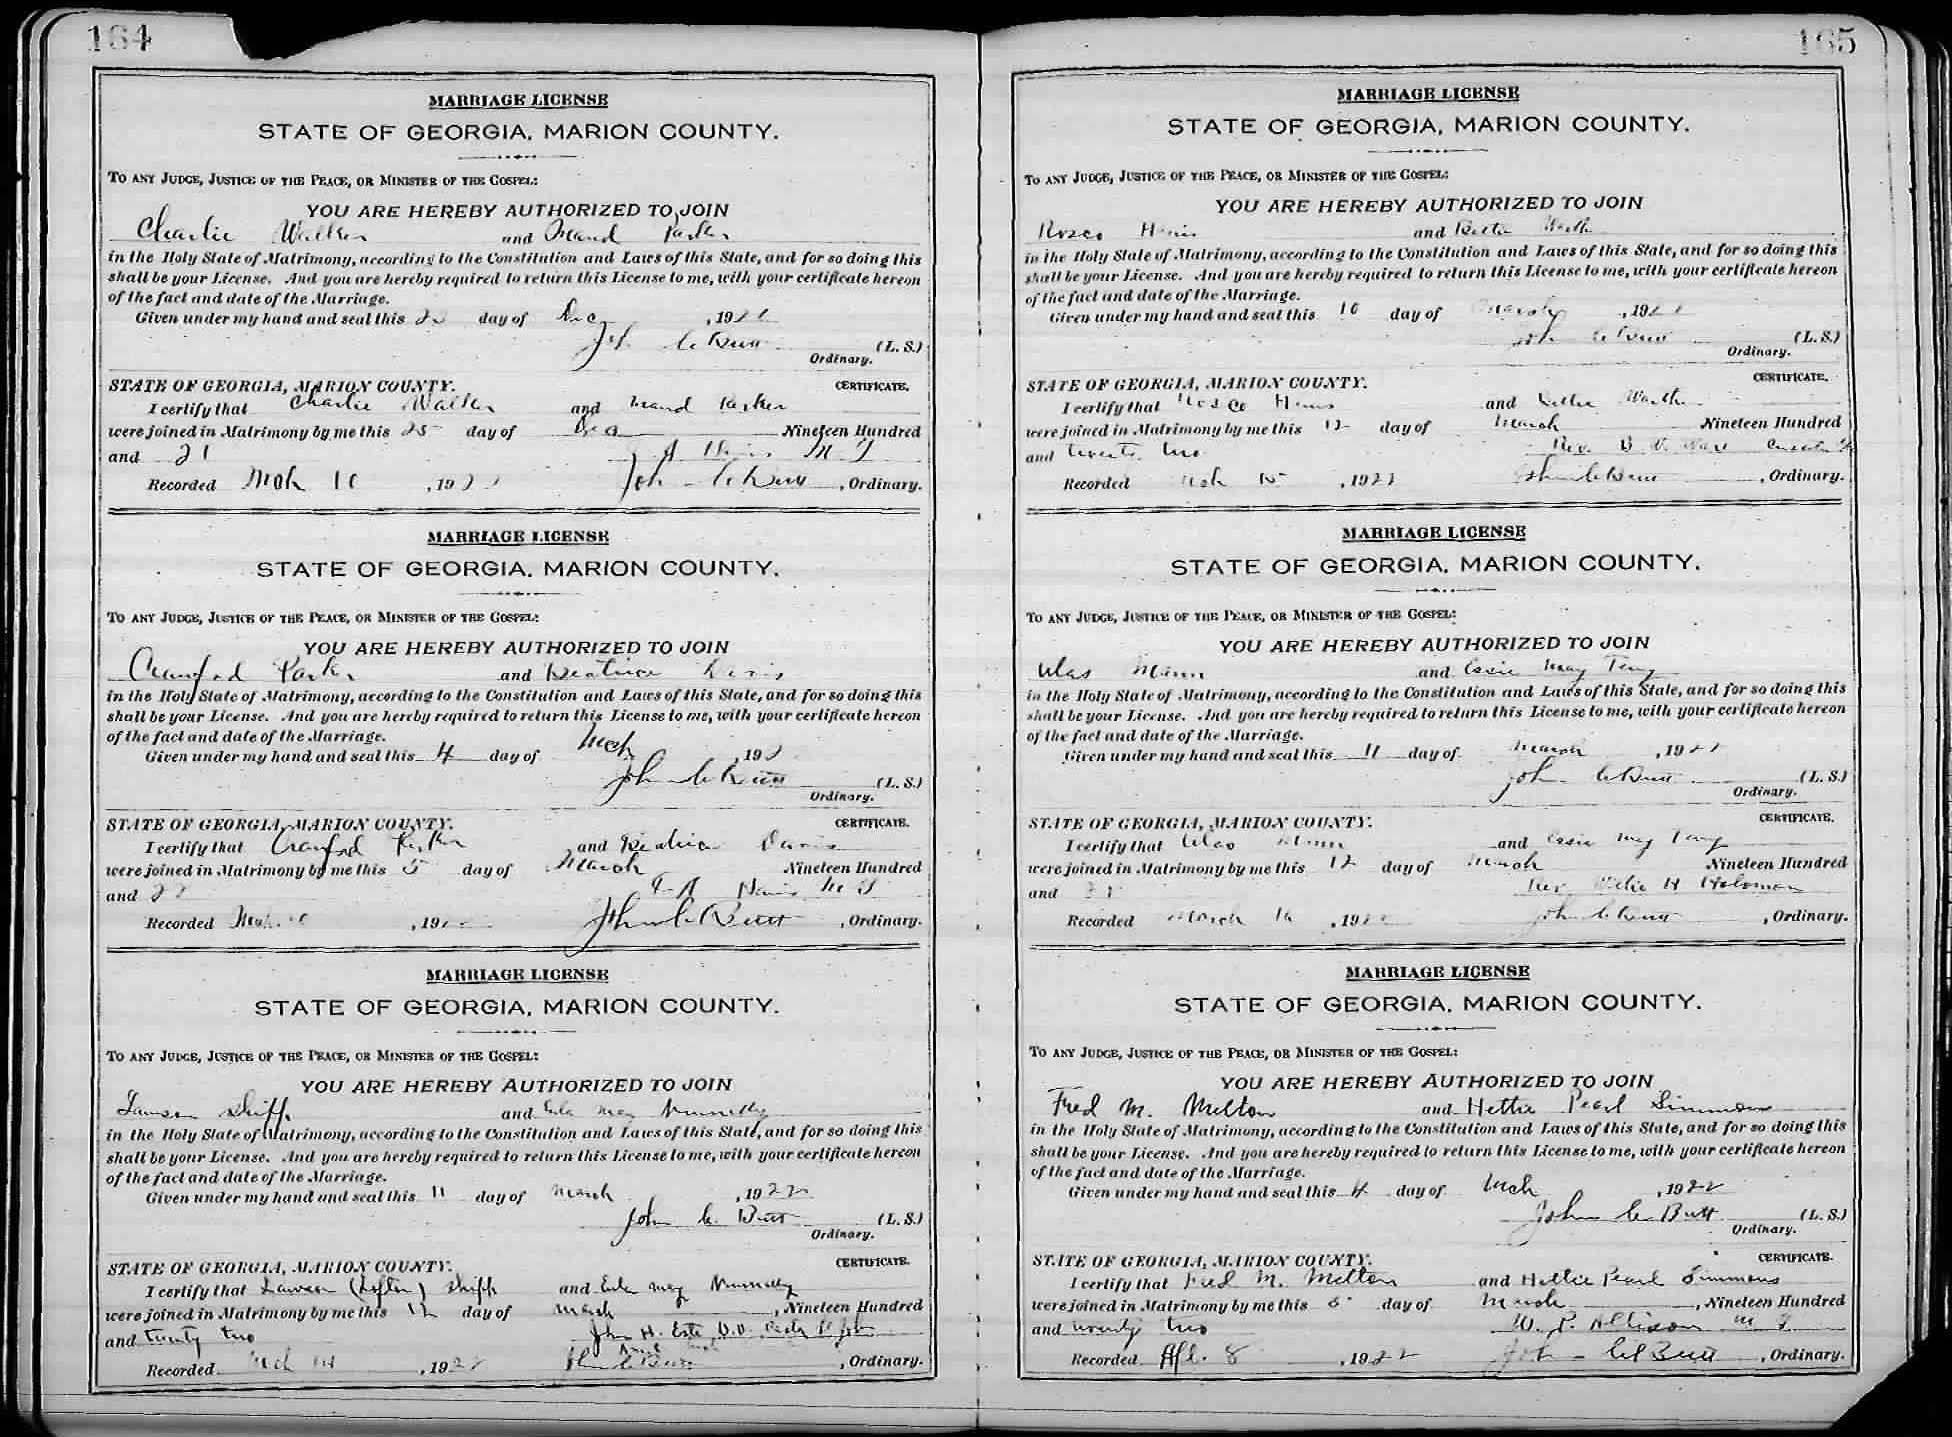 164
MARRIAGE LICENSE
STATE OF GEORGIA, MARION COUNTY.
TO ANY JUDGE, JUSTICE OF THE PEACE, OR MINISTER OF THE GOSPEL:
YOU ARE HEREBY AUTHORIZED TO JOIN
Charlie Walker and Maud Parker
in the Holy State of Matrimony, according to the Constitution and Laws of this State, and for so doing this
shall be your License. And you are hereby required to return this License to me, with your certificate hereon
of the fact and date of the Marriage.
Given under my hand and seal this day of Dec , 192
C Butt (L. S.)
Ordinary.
STATE OF GEORGIA, MARION COUNTY. CERTIFICATE.
I certify that Charlie Walker and Maud Parker
were joined in Matrimony by me this 25 day of Dec Nineteen Hundred
and 21
Recorded Mch 10 , 192 John C Butt , Ordinary.
MARRIAGE LICENSE
STATE OF GEORGIA, MARION COUNTY.
TO ANY JUDGE, JUSTICE OF THE PEACE, OR MINISTER OF THE GOSPEL:
YOU ARE HEREBY AUTHORIZED TO JOIN
Crawford Parker and Beatrice Davis
in the Holy State of Matrimony, according to the Constitution and Laws of this State, and for so doing this
shall be your License. And you are hereby required to return this License to me, with your certificate hereon
of the fact and date of the Marriage.
Given under my hand and seal this 4 day of Mch , 192
John C Butt (L. S.)
Ordinary.
STATE OF GEORGIA, MARION COUNTY. CERTIFICATE.
I certify that Crawford Parker and Beatrice Davis
were joined in Matrimony by me this 5 day of March Nineteen Hundred
and 22
Recorded , 19 John C Butt , Ordinary.
MARRIAGE LICENSE
STATE OF GEORGIA, MARION COUNTY.
TO ANY JUDGE, JUSTICE OF THE PEACE, OR MINISTER OF THE GOSPEL:
YOU ARE HEREBY AUTHORIZED TO JOIN
Lawson Shipp and Eula May Nunnally
in the Holy State of Matrimony, according to the Constitution and Laws of this State, and for so doing this
shall be your License. And you are hereby required to return this License to me, with your certificate hereon
of the fact and date of the Marriage.
Given under my hand and seal this 11 day of March , 1922
John C. Butt (L. S.)
Ordinary.
STATE OF GEORGIA, MARION COUNTY. CERTIFICATE.
I certify that Lawson (Lofton) Shipp and Eula May Nunnally
were joined in Matrimony by me this 12 day of March , Nineteen Hundred
and twenty two John H.
Recorded Mch 14 , 1922 John C Butt , Ordinary.
165
MARRIAGE LICENSE
STATE OF GEORGIA, MARION COUNTY.
TO ANY JUDGE, JUSTICE OF THE PEACE, OR MINISTER OF THE GOSPEL:
YOU ARE HEREBY AUTHORIZED TO JOIN
Rosco and
in the Holy State of Matrimony, according to the Constitution and Laws of this State, and for so doing this
shall be your License. And you are hereby required to return this License to me, with your certificate hereon
of the fact and date of the Marriage.
Given under my hand and seal this 10 day of March , 192
John C Butt (L. S.)
Ordinary.
STATE OF GEORGIA, MARION COUNTY. CERTIFICATE.
I certify that Rosco and
were joined in Matrimony by me this 12 day of March Nineteen Hundred
and twenty two Rev.
Recorded Mch 15 , 1922 John C Butt , Ordinary.
MARRIAGE LICENSE
STATE OF GEORGIA, MARION COUNTY.
TO ANY JUDGE, JUSTICE OF THE PEACE, OR MINISTER OF THE GOSPEL:
YOU ARE HEREBY AUTHORIZED TO JOIN
Ulas Minn and Essie May Terry
in the Holy State of Matrimony, according to the Constitution and Laws of this State, and for so doing this
shall be your License. And you are hereby required to return this License to me, with your certificate hereon
of the fact and date of the Marriage.
Given under my hand and seal this 11 day of March , 1922
John C Butt (L. S.)
Ordinary.
STATE OF GEORGIA, MARION COUNTY. CERTIFICATE.
I certify that Ulas Minn and Essie May Terry
were joined in Matrimony by me this 12 day of March Nineteen Hundred
and Rev Willie H Holoman
Recorded March 16 , 192 John C Butt , Ordinary.
MARRIAGE LICENSE
STATE OF GEORGIA, MARION COUNTY.
TO ANY JUDGE, JUSTICE OF THE PEACE, OR MINISTER OF THE GOSPEL:
YOU ARE HEREBY AUTHORIZED TO JOIN
Fred M. Melton and Hettie Pearl Simmons
in the Holy State of Matrimony, according to the Constitution and Laws of this State, and for so doing this
shall be your License. And you are hereby required to return this License to me, with your certificate hereon
of the fact and date of the Marriage.
Given under my hand and seal this 4 day of Mch , 1922
John C Butt (L. S.)
Ordinary.
STATE OF GEORGIA, MARION COUNTY. CERTIFICATE.
I certify that Fred M. Melton and Hettie Pearl Simmons
were joined in Matrimony by me this 5 day of March , Nineteen Hundred
and twenty two W. P. Allison M G
Recorded Apl. 8 , 1922 John C Butt , Ordinary.